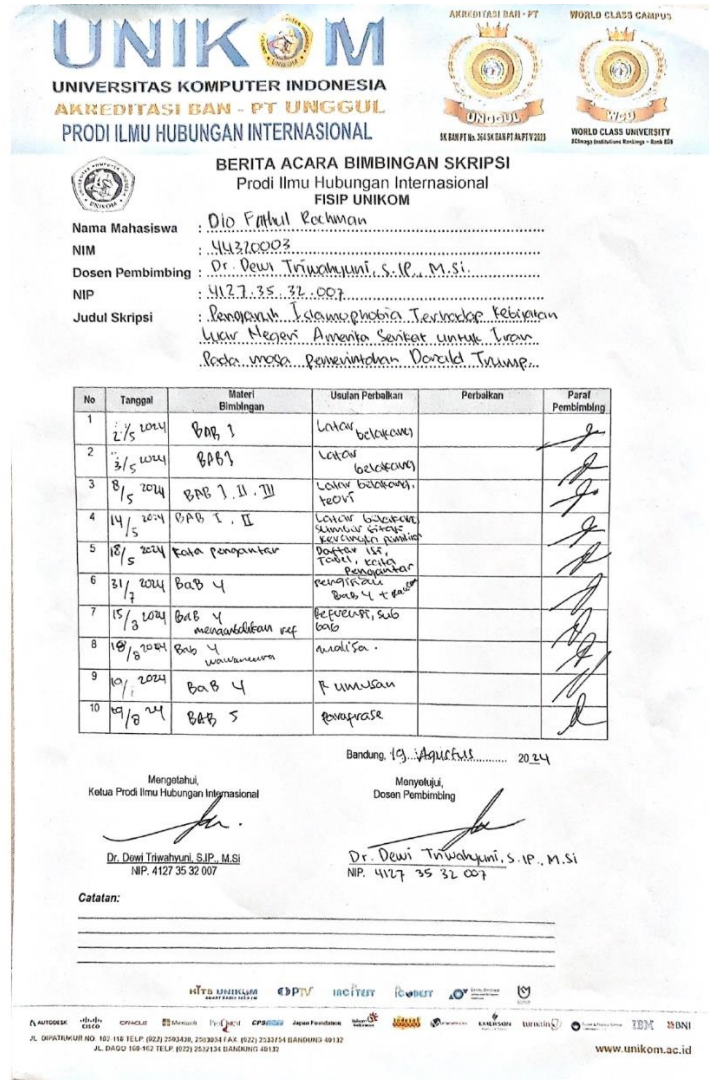 UNIKOM
UNIVERSITAS KOMPUTER INDONESIA
AKREDITASI BAN - PT UNGGUL
PRODI ILMU HUBUNGAN INTERNASIONAL
AKREDITASI BAN - PT
UNGGUL
WORLD CLASS CAMPUS
WCU
WORLD CLASS UNIVERSITY
BERITA ACARA BIMBINGAN SKRIPSI
Prodi Ilmu Hubungan Internasional
FISIP UNIKOM
Nama Mahasiswa : Dio Fathul Rochman
NIM : 44320003
Dosen Pembimbing : Dr. Dewi Triwahyuni, S.IP., M.Si.
NIP : 4127.35.32.007
Judul Skripsi : Pengaruh Islamophobia Terhadap Kebijakan
Luar Negeri Amerika Serikat untuk Iran
Pada masa pemerintahan Donald Trump.
No Tanggal Materi Bimbingan Usulan Perbaikan Perbaikan Paraf Pembimbing
1 2/5 2024 BAB 1 Latar belakang
2 3/5 2024 BAB 1 Latar belakang
3 8/5 2024 BAB I. II. III Latar belakang, teori
4 14/5 2024 BAB I. II Latar belakang
5 18/5 2024 Kata pengantar Daftar isi, Tabel, kata Pengantar
6 31/7 2024 BaB 4 BaB 4
7 15/8 2024 BAB 4 ref Referensi, sub bab
8 18/8 2024 Bab 4 wawancara
9 2024 BaB 4 Rumusan
10 19/8 24 BAB 5 parafrase
Bandung, 19 Agustus 2024
Mengetahui,
Ketua Prodi Ilmu Hubungan Internasional
Menyetujui,
Dosen Pembimbing
Dr. Dewi Triwahyuni, S.IP., M.Si
NIP. 4127 35 32 007
Dr. Dewi Triwahyuni, S.IP., M.Si
NIP. 4127 35 32 007
Catatan:
HITS UNIKOM
INCITEST
AUTODESK CISCO ORACLE Microsoft ProQuest Japan Foundation EMERSON turnitin IBM BNI
JL. DIPATIUKUR NO. 102-118 TELP. (022) 2503054 BANDUNG 40132
JL. DAGO 160-162 TELP. (022) 2532134 BANDUNG 40132
www.unikom.ac.id